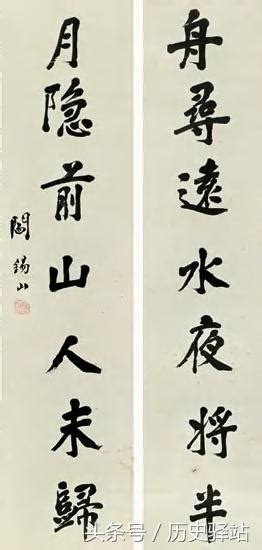 舟尋遠水夜將半
月隐前山人未歸
閻錫山
头条号／历史驿站